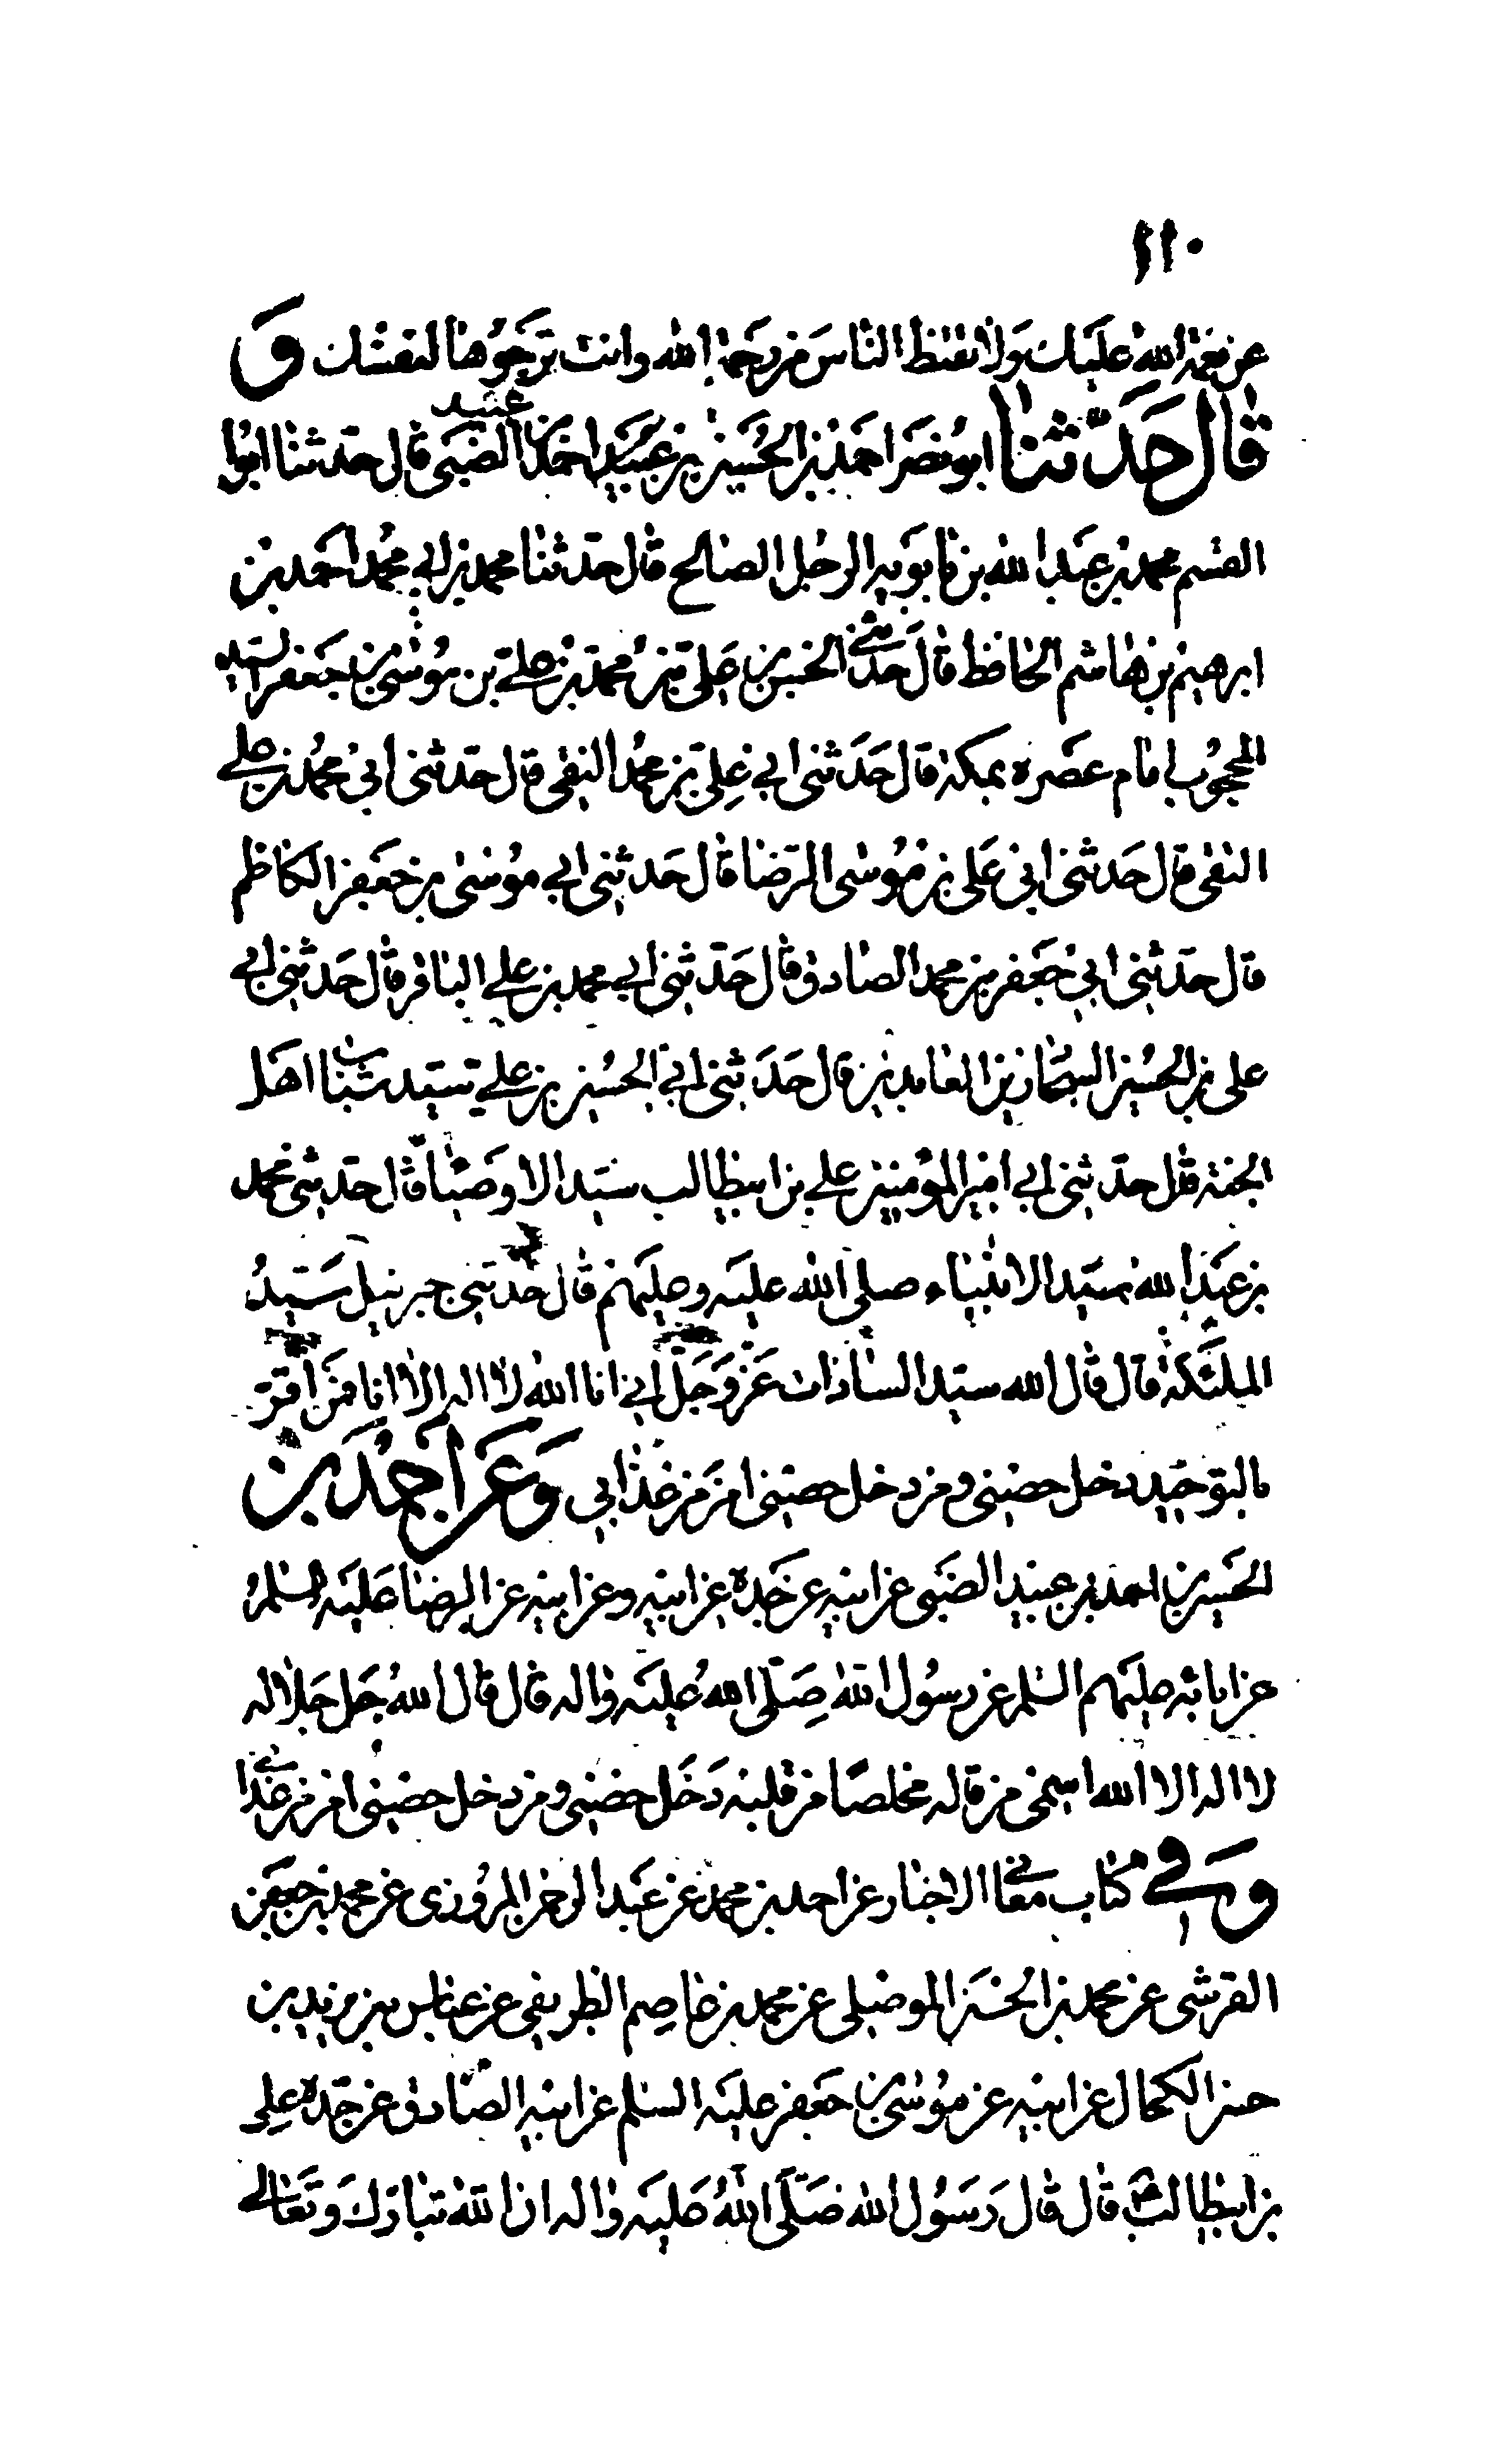 ١١٠
عن نعمة الله عليك ولا تقنط الناس من رحمة الله وانت ترجوها لنفسك و
قال حدثنا ابو نصر احمد بن الحسين بن عبيد احمد بن عبيد الضبى قال حدثنا ابوا
القسم محمد بن عبد الله بن بابويه الرجل الصالح قال حدثنا محمد بن ابي محمد احمد بن
ابرهيم بن هاشم الحافظ قال حدثنى الحسن بن على بن محمد بن على بن موسى بن جعفر السيد
المحجوب امام عصره بمكة قال حدثنى ابي على بن محمد النقى قال حدثنى ابي محمد بن على
التقى قال حدثنى ابى على بن موسى الرضا قال حدثنى ابي موسى بن جعفر الكاظم
قال حدثنى ابي جعفر بن محمد الصادق قال حدثنى ابي محمد بن على الباقر قال حدثنى ابي
على بن الحسين السجاد زين العابدين قال حدثنى ابي الحسين بن على سيد شباب اهل
الجنة قال حدثنى ابي امير المؤمنين على بن ابيطالب سيد الاوصيا قال حدثنى محمد
بن عبد الله سيد الانبياء صلى الله عليه وعليهم قال حدثنى جبرئيل سيد
الملئكة قال قال الله سيد السادات عز وجل اني انا الله لا اله الا انا فمن اقر
بالتوحيد دخل حصنى ومن دخل حصنى امن من عذابي وعن احمد بن
الحسين بن احمد بن عبيد الضبى عن ابيه عن جده عن ابيه وعن ابيه عن الرضا عليه السلم
عن ابائه عليهم السلم عن رسول الله صلى الله عليه واله قال قال الله جل جلاله
لا اله الا الله اسمى من قاله مخلصا من قلبه دخل حصنى ومن دخل حصنى امن من عذابي
وفي كتاب معاني الاخبار عن احمد بن محمد عن عبد الرحمن المروزى عن محمد بن جعفر
القرشى عن محمد بن الحسن الموصلى عن محمد بن عاصم الطريفى عن عباس بن يزيد بن
حسن الكحال عن ابيه عن موسى بن جعفر عليه السلم عن ابيه الصادق عن جده على
بن ابيطالب قال قال رسول الله صلى الله عليه واله ان الله تبارك وتعالى